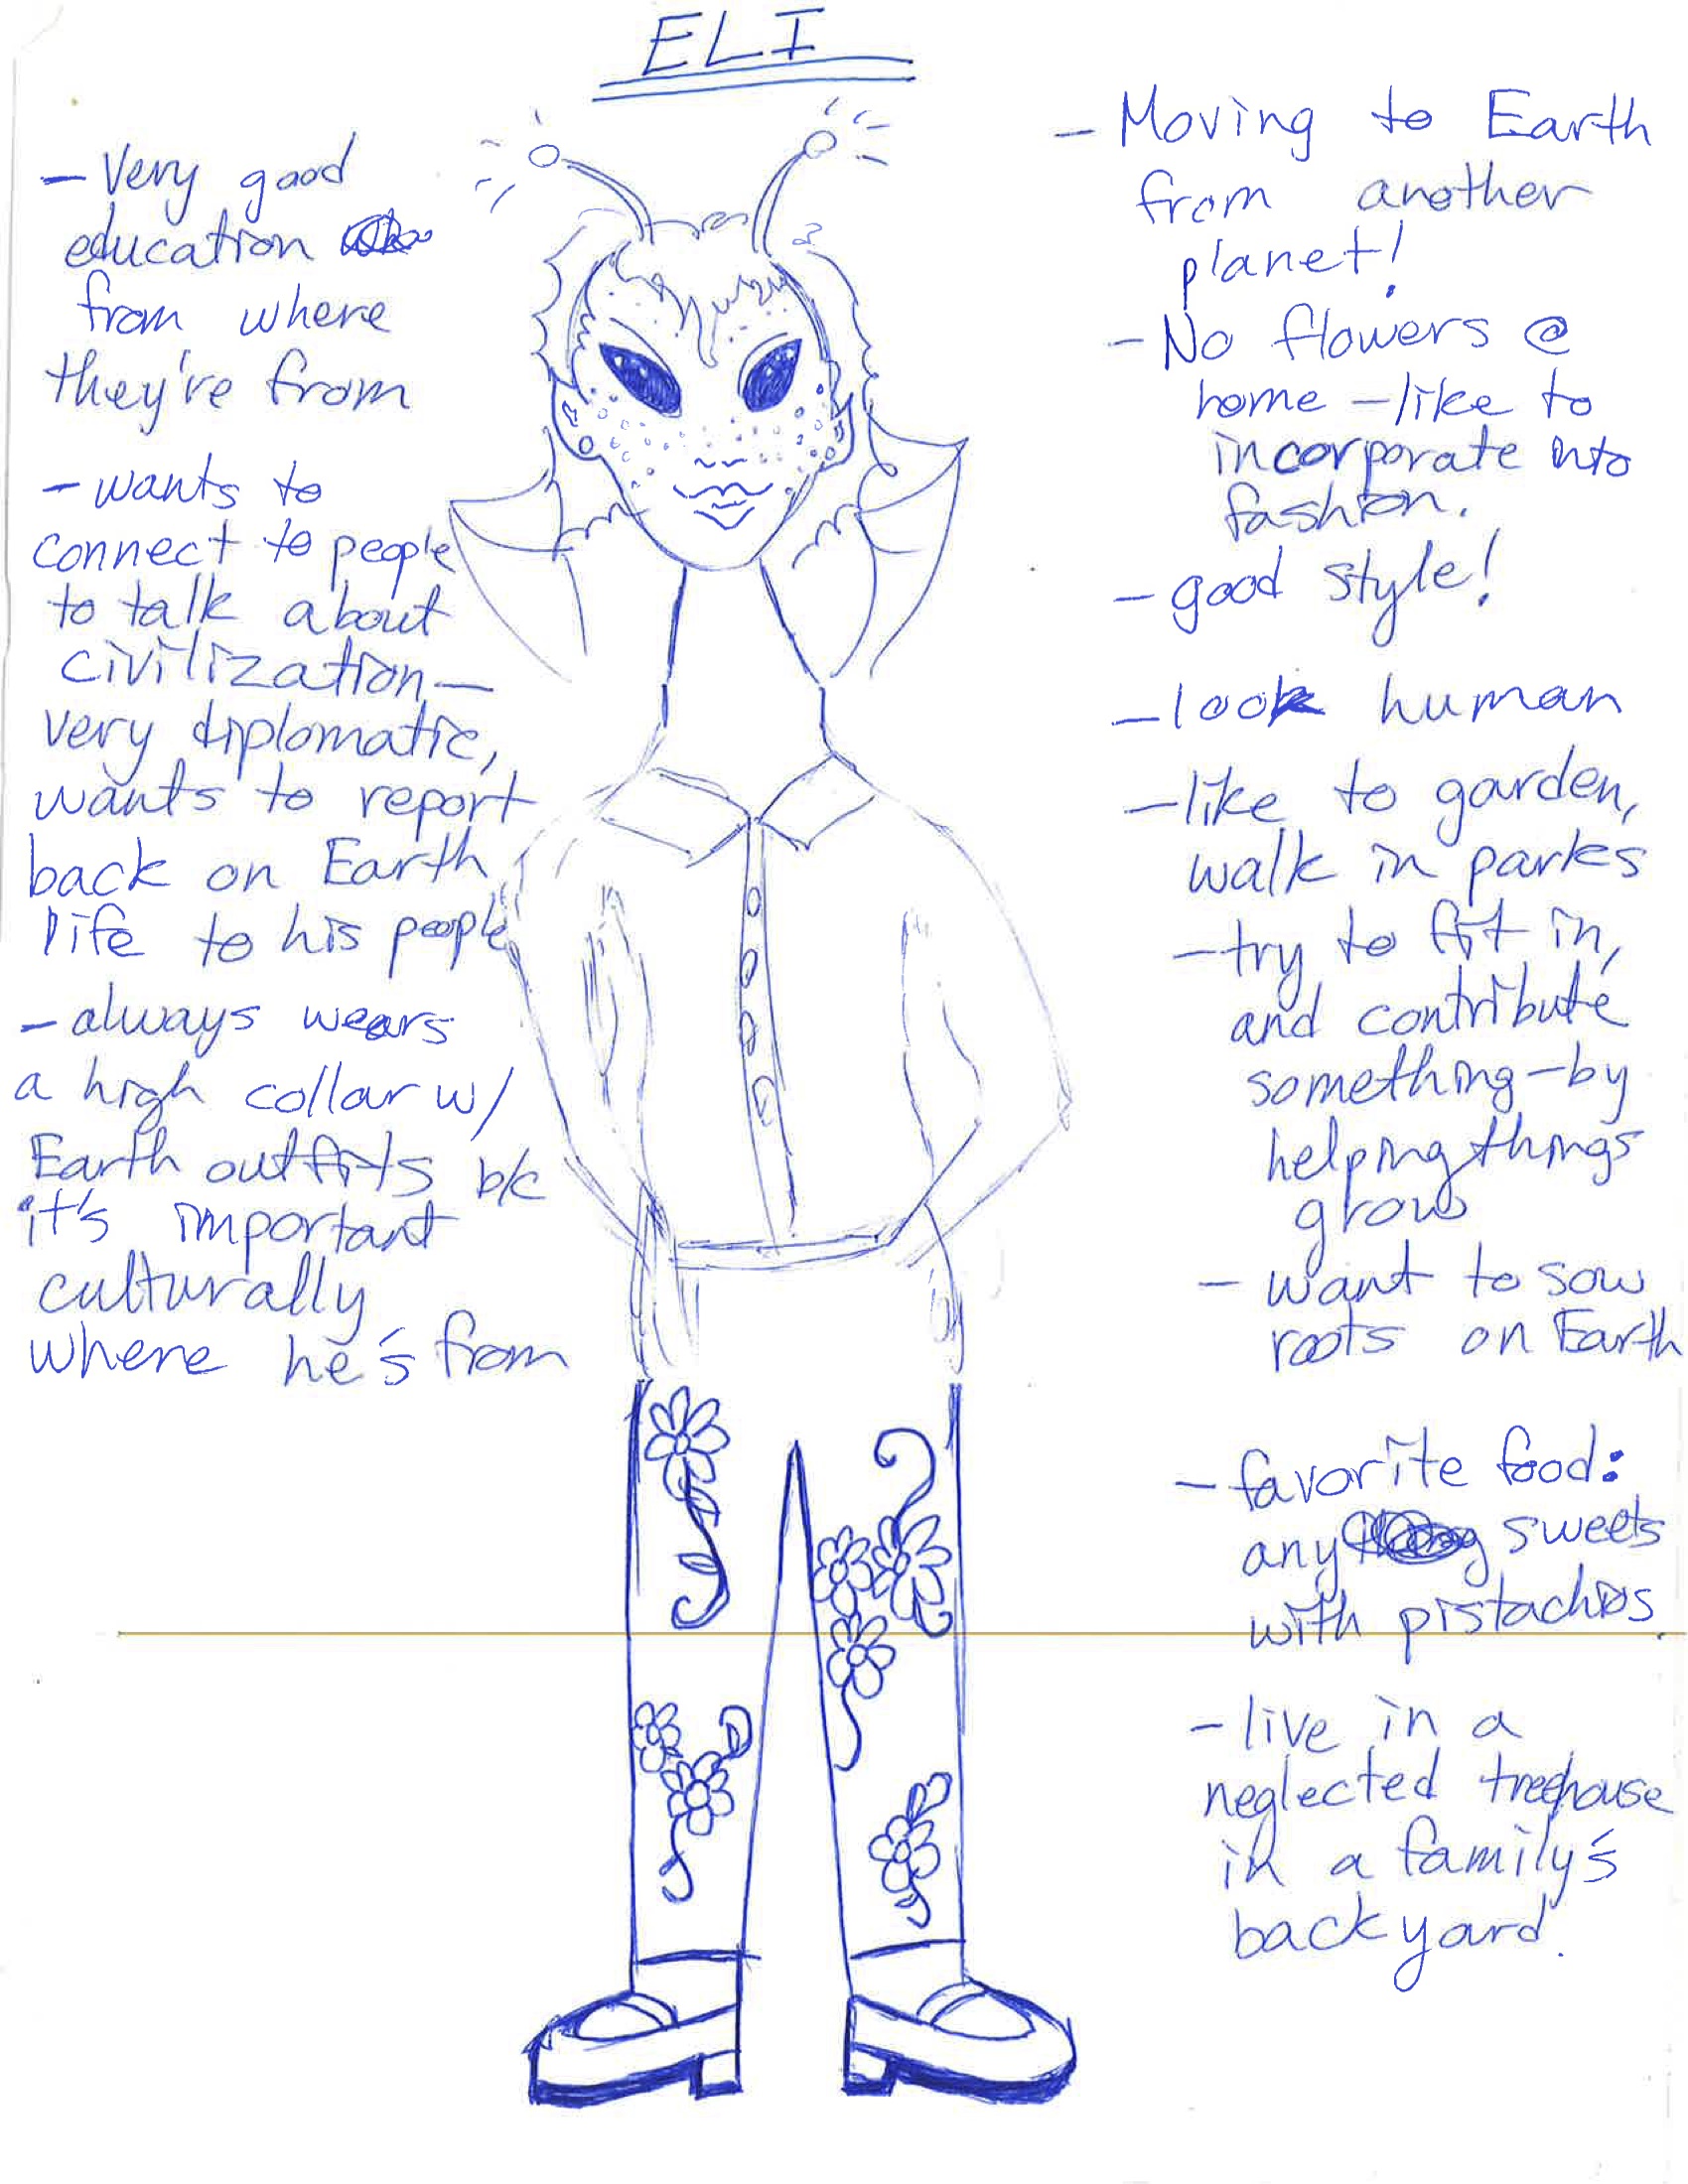 ELI
- Very good
education
from where
they're from
- wants to
connect to people
to talk about
civilization -
very diplomatic,
wants to report
back on Earth
life to his people
- always wears
a high collar w/
Earth outfits b/c
it's important
culturally
where he's from
- Moving to Earth
from another
planet!
- No flowers @
home - like to
incorporate into
fashion.
- good style!
- look human
- like to garden,
walk in parks
- try to fit in,
and contribute
something - by
helping things
grow
- want to sow
roots on Earth
- favorite food:
any sweets
with pistachios.
- live in a
neglected treehouse
in a family's
backyard.